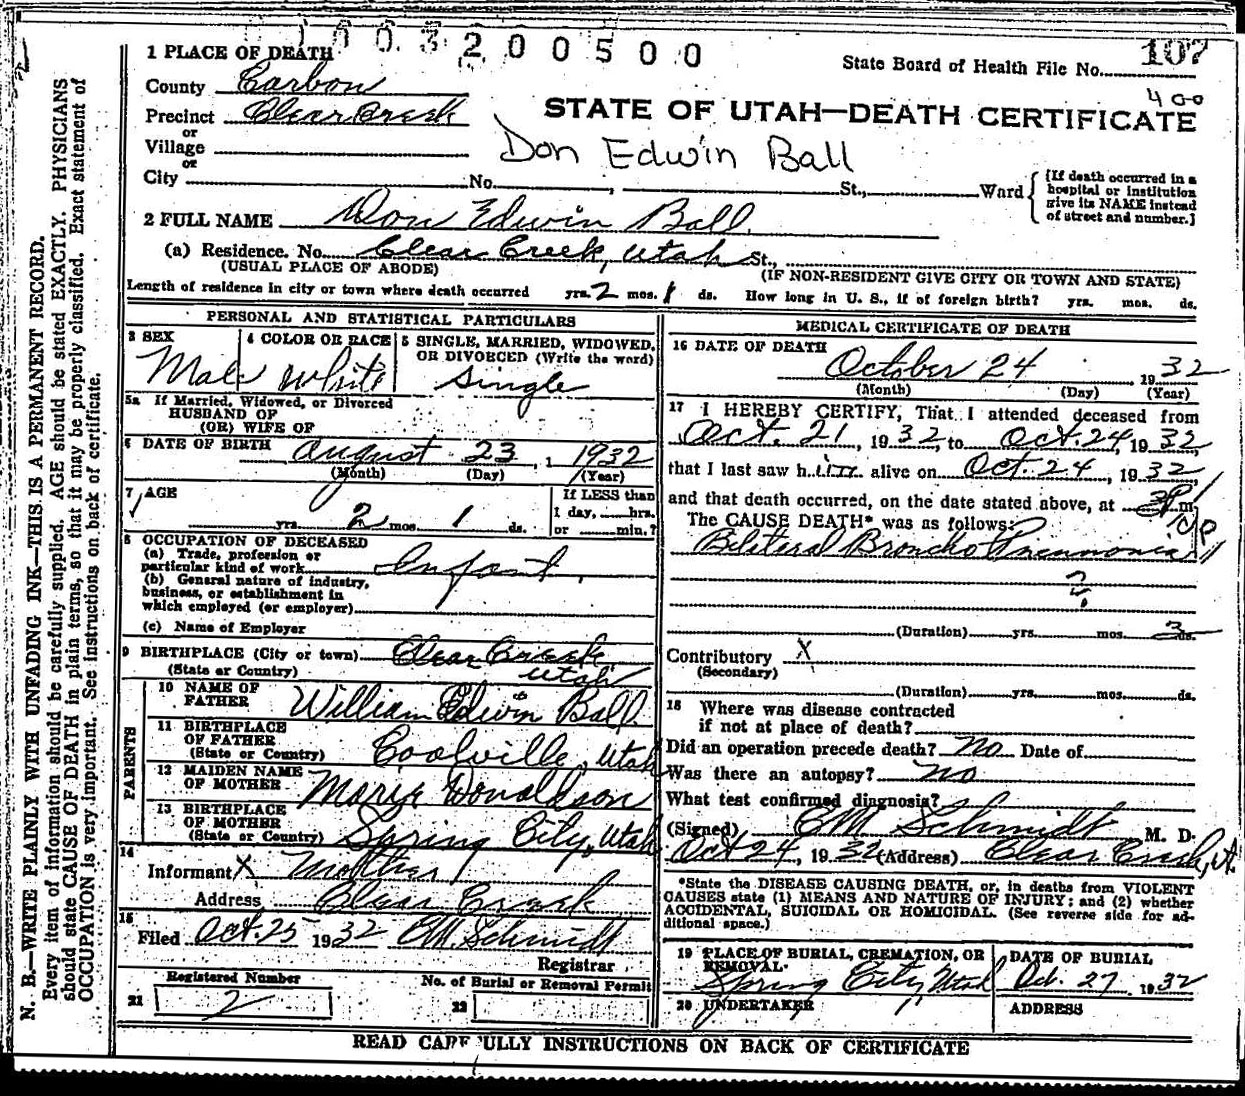 1003200500
107
State Board of Health File No.
400
1 PLACE OF DEATH
County Carbon
Precinct Clear Creek
or
Village
or
City No. , St., Ward
STATE OF UTAH—DEATH CERTIFICATE
Don Edwin Ball
{If death occurred in a hospital or institution give its NAME instead of street and number.]
2 FULL NAME Don Edwin Ball
(a) Residence. No. Clear Creek, Utah St.,
(USUAL PLACE OF ABODE) (IF NON-RESIDENT GIVE CITY OR TOWN AND STATE)
Length of residence in city or town where death occurred yrs. 2 mos. 1 ds. How long in U. S., if of foreign birth? yrs. mos. ds.
PERSONAL AND STATISTICAL PARTICULARS
3 SEX Male
4 COLOR OR RACE White
5 SINGLE, MARRIED, WIDOWED, OR DIVORCED (Write the word) Single
5a If Married, Widowed, or Divorced
HUSBAND OF
(OR) WIFE OF
6 DATE OF BIRTH August 23, 1932
(Month) (Day) (Year)
7 AGE
yrs. 2 mos. 1 ds.
If LESS than
1 day, hrs.
or min.?
8 OCCUPATION OF DECEASED
(a) Trade, profession or
particular kind of work Infant
(b) General nature of industry,
business, or establishment in
which employed (or employer)
(c) Name of Employer
9 BIRTHPLACE (City or town) Clear Creek,
(State or Country) Utah
PARENTS
10 NAME OF FATHER William Edwin Ball
11 BIRTHPLACE OF FATHER (State or Country) Coalville, Utah
12 MAIDEN NAME OF MOTHER Marie Donaldson
13 BIRTHPLACE OF MOTHER (State or Country) Spring City, Utah
14
Informant X Mother
Address Clear Creek
15
Filed Oct. 25 1932 EM Schmidt
Registrar
Registered Number
21 2
No. of Burial or Removal Permit
22
MEDICAL CERTIFICATE OF DEATH
16 DATE OF DEATH
October 24 1932
(Month) (Day) (Year)
17 I HEREBY CERTIFY, That I attended deceased from
Oct. 21, 1932, to Oct. 24, 1932,
that I last saw him alive on Oct. 24, 1932
and that death occurred, on the date stated above, at 3P m
The CAUSE DEATH* was as follows:
Bilateral Broncho Pneumonia
(Duration) yrs. mos. 3 ds.
Contributory X
(Secondary)
(Duration) yrs. mos. ds.
18 Where was disease contracted
if not at place of death?
Did an operation precede death? No Date of
Was there an autopsy? No
What test confirmed diagnosis?
(Signed) EM Schmidt M. D.
Oct 24, 1932 (Address) Clear Creek, Ut.
*State the DISEASE CAUSING DEATH, or, in deaths from VIOLENT
CAUSES state (1) MEANS AND NATURE OF INJURY; and (2) whether
ACCIDENTAL, SUICIDAL OR HOMICIDAL. (See reverse side for ad-
ditional space.)
19 PLACE OF BURIAL, CREMATION, OR REMOVAL
Spring City, Utah
DATE OF BURIAL
Oct. 27, 1932
20 UNDERTAKER
ADDRESS
READ CAREFULLY INSTRUCTIONS ON BACK OF CERTIFICATE
N. B.—WRITE PLAINLY WITH UNFADING INK—THIS IS A PERMANENT RECORD.
Every item of information should be carefully supplied. AGE should be stated EXACTLY. PHYSICIANS
should state CAUSE OF DEATH in plain terms, so that it may be properly classified. Exact statement of
OCCUPATION is very important. See instructions on back of certificate.